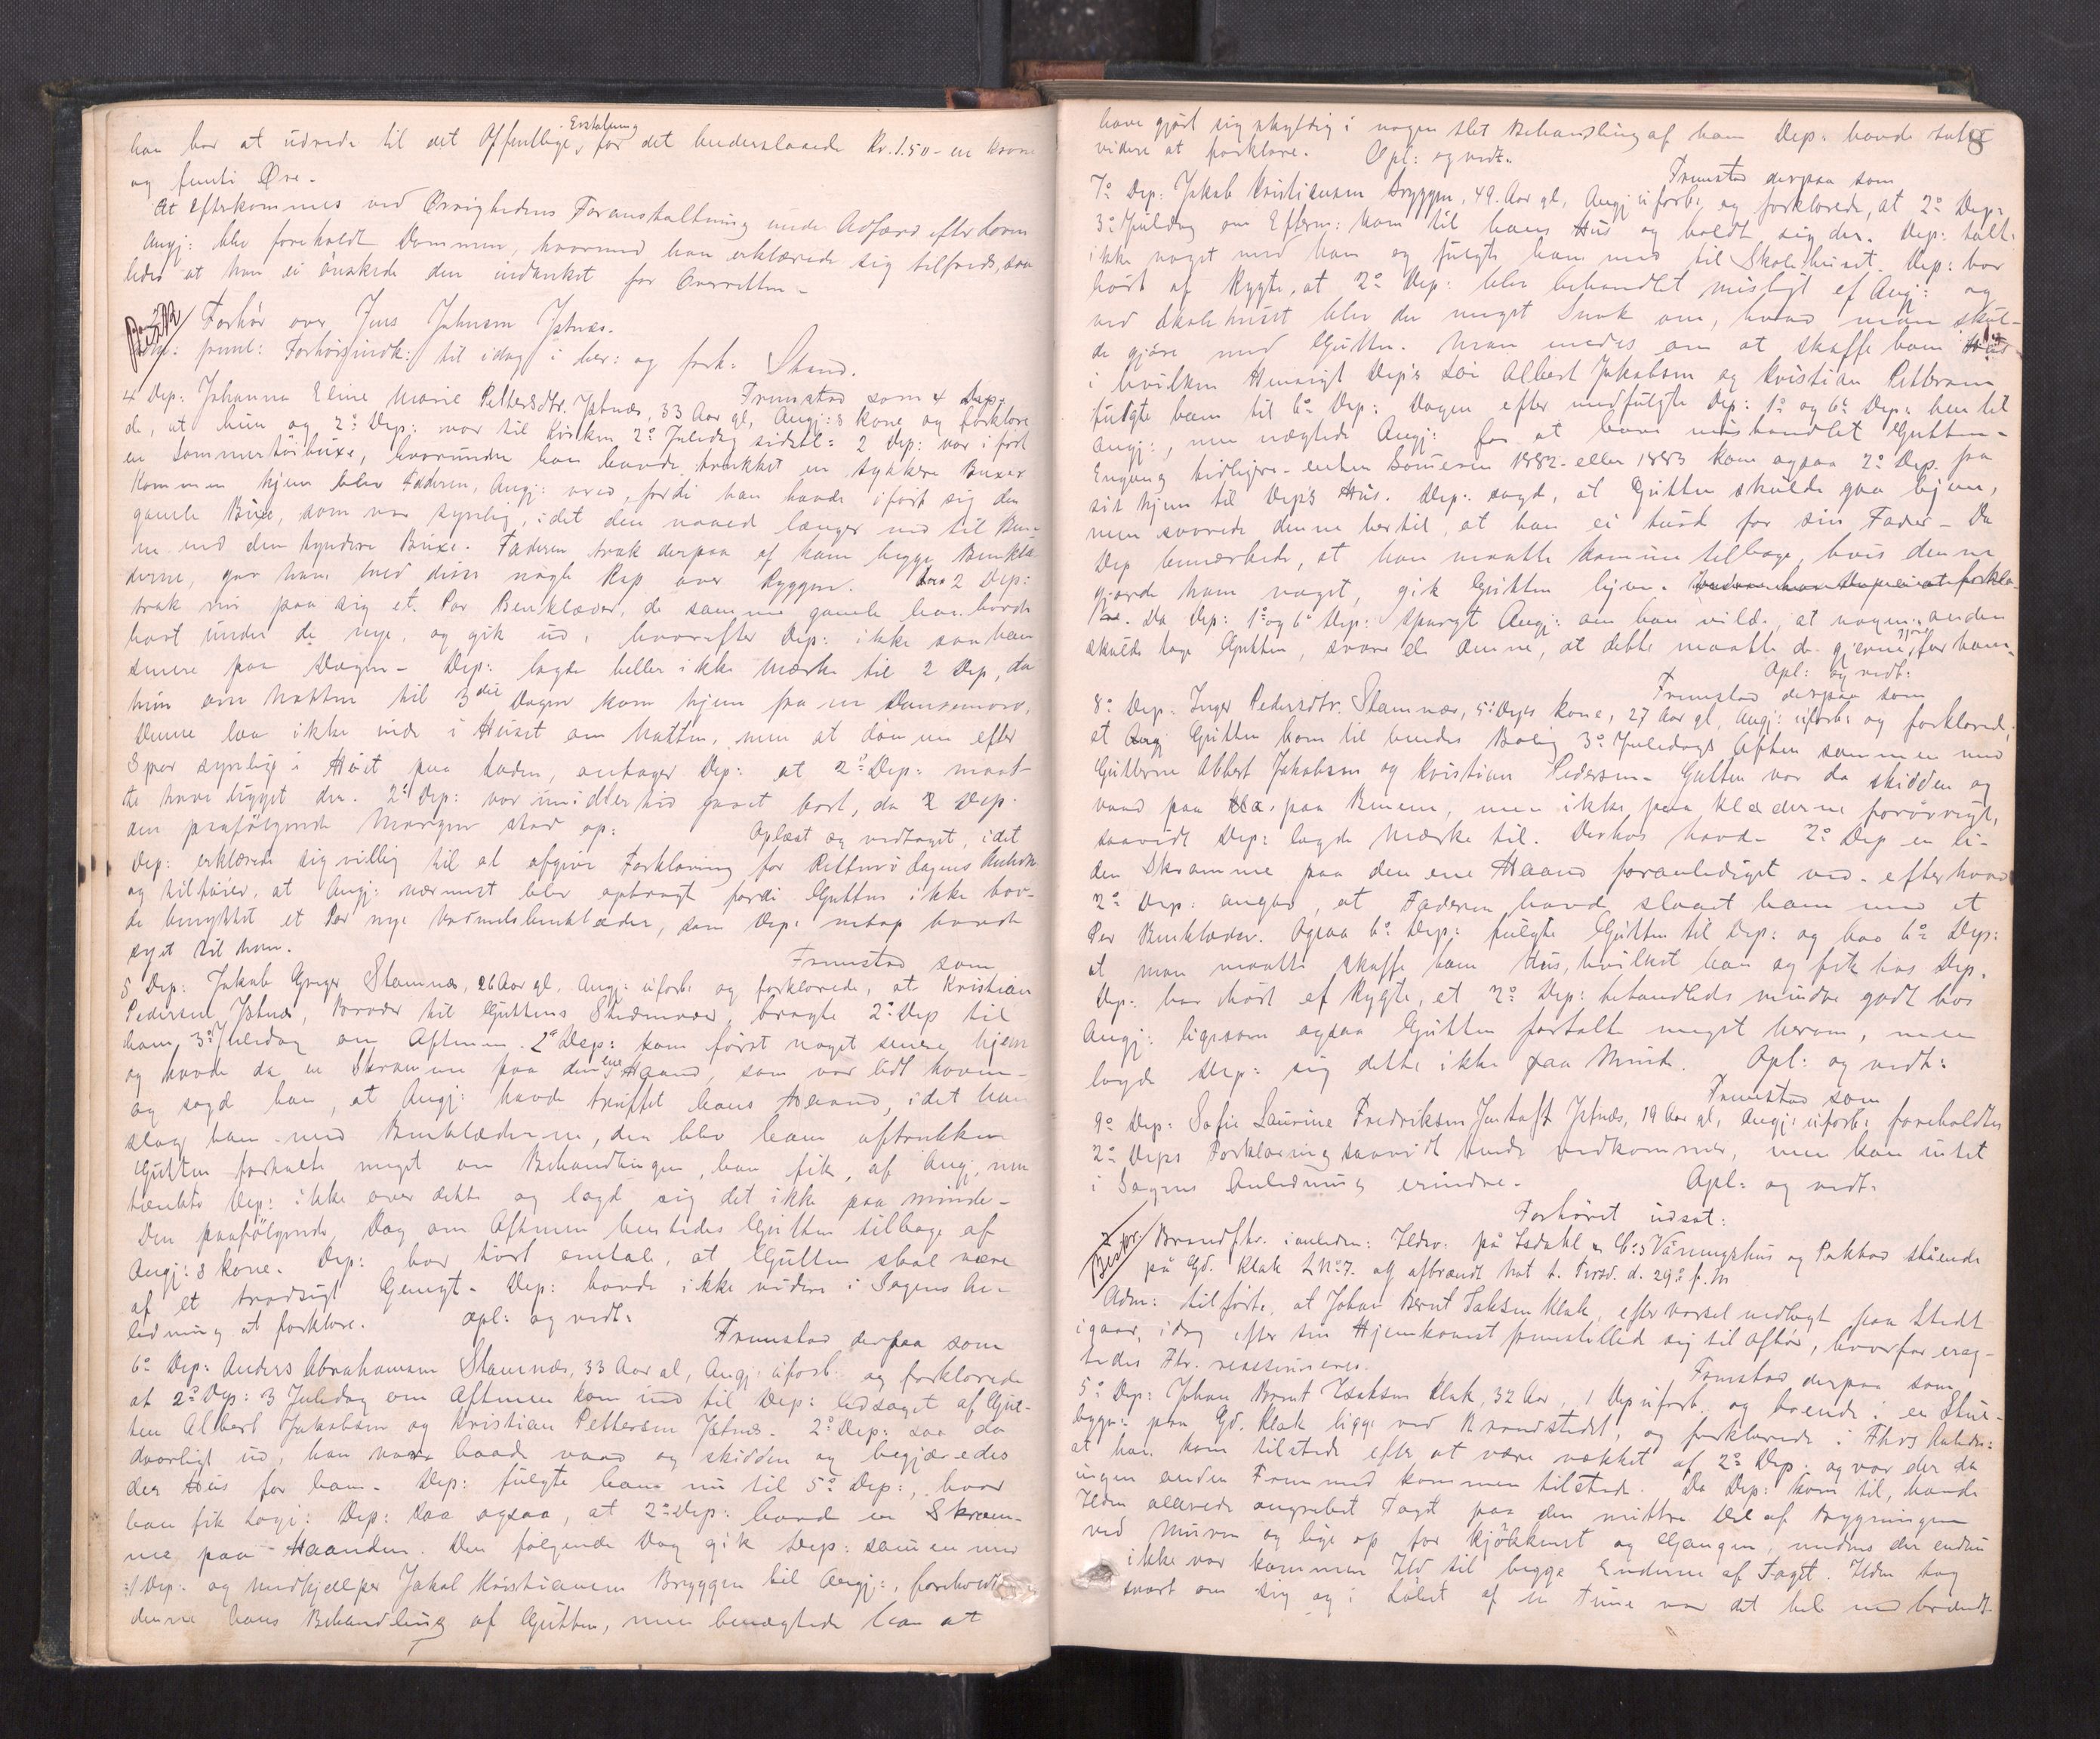 han har at udrede til det Offentlige Erstatning for det underslaaede Kr. 1.50 - en krone
og femti Øre.
At efterkommes ved Øvrighedens Foranstaltning under Adfærd efter Loven
Angj: blev foreholdt Dommen, hvormed han erklærede sig tilfreds, saa
ledes at han ei ønskede den indanket for Overretten -
Forhør over Jens Johnsen Jstnæs.
Adm: prml: Forhørsindk: til idag i ber: og fork: Stand.
Fremstod som 4 Dep.
4 Dep: Johanna Eline Marie Pettersdtr. Jstnæs, 33 Aar gl, Angj:s kone og forklare
de, at hun og 2: Dep: var til Kirken 2: Juledag sidstl: 2 Dep: var iført
en Sommertøibuxe, hvorunder han havde trukket en tykkere Buxer
Kommen hjem blev Faderen, Angj: vred, fordi han havde iført sig den
gamle Buxe, som var synlig, idet den naaed længer ned til Bene-
ne end den tyndere Buxe. Faderen trak derpaa af ham begge Benklæ-
derne, gav ham med disse nogle Rap over Ryggen. 2 Dep:
trak nu paa sig et Par Benklæder, de samme gamle han havde
havt under de nye, og gik ud, hvorefter Dep: ikke saa ham
senere paa Dagen - Dep: lagde heller ikke Mærke til 2 Dep, da
hun om Natten til 3die Dagen kom hjem fra en Dansemoro.
Denne laa ikke inde i Huset om Natten, men at dømme efter
Spor synlige i Høiet paa Laden, antager Dep: at 2: Dep: maat-
te have ligget der. 2: Dep: var imidlertid gaaet bort, da 2 Dep.
om paafølgende Morgen stod op: Oplæst og vedtaget, idet
Dep: erklærede sig villig til at afgive Forklaring for Retten i dagens Anledn.
og tilføier, at Angj: nærmest blev opbragt fordi Gutten ikke hav-
de benyttet et Par nye Vadmelsbenklæder, som Dep: netop havde
syet til ham.
Fremstod som
5 Dep: Jakob Greger Stamnæs, 26 Aar gl. Angj: uforb: og forklarede, at Kristian
Pedersen Jstnæs, Broder til Guttens Stedmoder, bragte 2: Dep til
ham 3: Juledag om Aftenen. 2: Dep: kom først noget senere hjem
og havde da en Skramme paa den ene Haand, som var lidt hoven -
og sagde han, at Angj: havde truffet hans Haand, idet han
slog ham med Benklæderne, der blev ham aftrukken
Gutten fortalte meget om Behandlingen, han fik, af Angj, men
tænkte Dep: ikke over dette og lagde sig det ikke paa minde -
Den paafølgende Dag om Aftenen hentedes Gutten tilbage af
Angj:s kone. Dep: har hørt omtale, at Gutten skal være
af et trodsigt Gemyt - Dep: havde ikke videre i Sagens An-
ledning at forklare. Opl: og vedt:
Fremstod derpaa som
6: Dep: Anders Abrahamsen Stamnæs, 33 Aar gl, Angj: uforb: og forklarede
at 2: Dep: 3 Juledag om Aftenen kom ind til Dep: ledsaget af Gut-
ten Albert Jakobsen og Kristian Pettersen Jstnæs. 2: Dep: saa da
daarligt ud, han var baade vaad og skidden og begjæredes
der Hus for ham - Dep: fulgte ham nu til 5: Dep:, hvor
han fik Logi: Dep: saa ogsaa, at 2: Dep: havde en Skram-
me paa Haanden. Den følgende Dag gik Dep: sammen med
1 Dep: og Medhjælper Jakob Kristiansen Bryggen til Angj:, foreholdt
denne hans Behandling af Gutten, men benægtede han at
8
have gjort sig skyldig i nogen slet Behandling af ham Dep: havde intet
videre at forklare. Opl: og vedt.
Fremstod derpaa som
7: Dep: Jakob Kristiansen Bryggen, 49 Aar gl, Angj uforb: og forklarede, at 2: Dep:
3: Juledag om Efterm: kom til hans Hus og holdt sig der. Dep: talte
ikke noget med ham og fulgte ham med til Skolehuset. Dep: har
hørt af Rygte, at 2: Dep: blev behandlet misligt af Angj: og
ved Skolehuset blev der meget Snak om, hvad man skul-
de gjøre med Gutten. Man enedes om at skaffe ham Hus
i hvilken Henseigt Dep's Søn Albert Jakobsen og Kristian Pettersen
fulgte ham til 6: Dep: Dagen efter medfulgte Dep: 1: og 6: Dep: hen til
Angj:, men nægtede Angj: for at have mishandlet Gutten -
Engang tidligere - enten Sommeren 1882 eller 1883 kom ogsaa 2: Dep. fra
sit hjem til Dep's Hus. Dep: sagde, at Gutten skulde gaa hjem,
men svarede denne hertil, at han ei turde for sin Fader - Da
Dep bemærkede, at han maatte komme tilbage, hvis denne
gjorde ham noget, gik Gutten hjem -
Da Dep: 1: og 6: Dep: spurgt Angj: om han vilde, at nogen anden
skulde tage Gutten, svarede denne, at dette maatte de gjerne gjøre for ham -
Opl: og vedt:
Fremstod derpaa som
8: Dep: Inger Pedersdtr. Stamnæs, 5: Dep's kone, 27 Aar gl, Angj: uforb: og forklarede,
at Gutten kom til hendes Bolig 3: Juledags Aften sammen med
Gutterne Albert Jakobsen og Kristian Pedersen - Gutten var da skidden og
vaad paa Benene, men ikke paa klæderne forøvrigt,
saavidt Dep: lagde Mærke til. Derhos havde 2: Dep en li-
den Skramme paa den ene Haand foranlediget ved - efter hvad
2: Dep: angav, at Faderen havde slaaet ham med et
Par Benklæder. Ogsaa 6: Dep: fulgte Gutten til Dep: og bad 6: Dep:
at man maatte skaffe ham Hus, hvilket han og fik hos Dep.
Dep: har hørt af Rygte, at 2: Dep: behandledes mindre godt hos
Angj: ligesom ogsaa Gutten fortalte meget herom, men
lagde Dep: sig dette ikke paa Minde. Opl: og vedt:
Fremstod som
9: Dep: Sofie Laurine Fredriksen Jstnæs, 19 Aar gl, Angj: uforb: foreholdtes
2: Deps Forklaring saavidt hende vedkommer, men kan intet
i Sagens Anledning erindre - Opl: og vedt:
Forhøret udsat:
Brandfhr. i anledn: Ildsv: på Isdahl & Co:s Væringshus og Pakbod stående
på Gd. Klak LNo 7. afbrændt Nat t. Tirsd. d. 29: f. M
Adm: tilførte, at Johan Bernt Isaksen Klak, efter varsel nedlagt paa Stedet
igaar, idag efter sin Hjemkomst fremstilled sig til Afhør, hvorfor erag-
tedes Fhr. reassumeres.
Fremstod derpaa som
5: Dep: Johan Bernt Isaksen Klak, 32 Aar, 1 Dep uforb. og boende i en Stue-
bygn: paa Gd. Klak ligge ved Brandstedet, og forklarede i Fhrs Anledn:
at han kom tilstede efter at være vækket af 2: Dep: og var der da
ingen anden Fremmed kommen tilstede. Da Dep: kom til, havde
Ilden allerede angrebet Taget paa den mittre Del af Bygningen
ved Muren og lige op for Kjøkkenet og Gangen, medens der endnu
ikke var kommen Ild til begge Enderne af Taget. Ilden tog
svært om sig og i Løbet af en Time var det hele nedbrændt